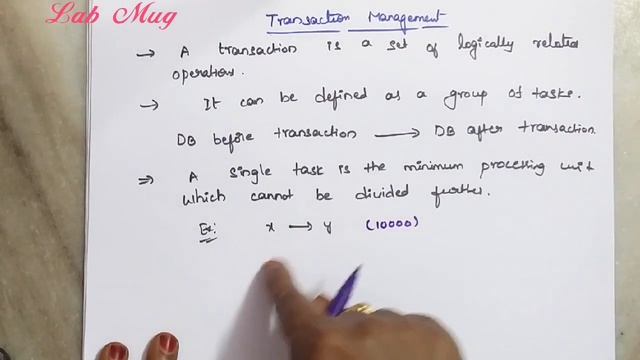 Lab Mug
Transaction Management
→ A transaction is a set of logically related
operations.
→ It can be defined as a group of tasks.
DB before transaction → DB after transaction.
⇒ A single task is the minimum processing unit
which cannot be divided further.
Ex: x → y (10000)